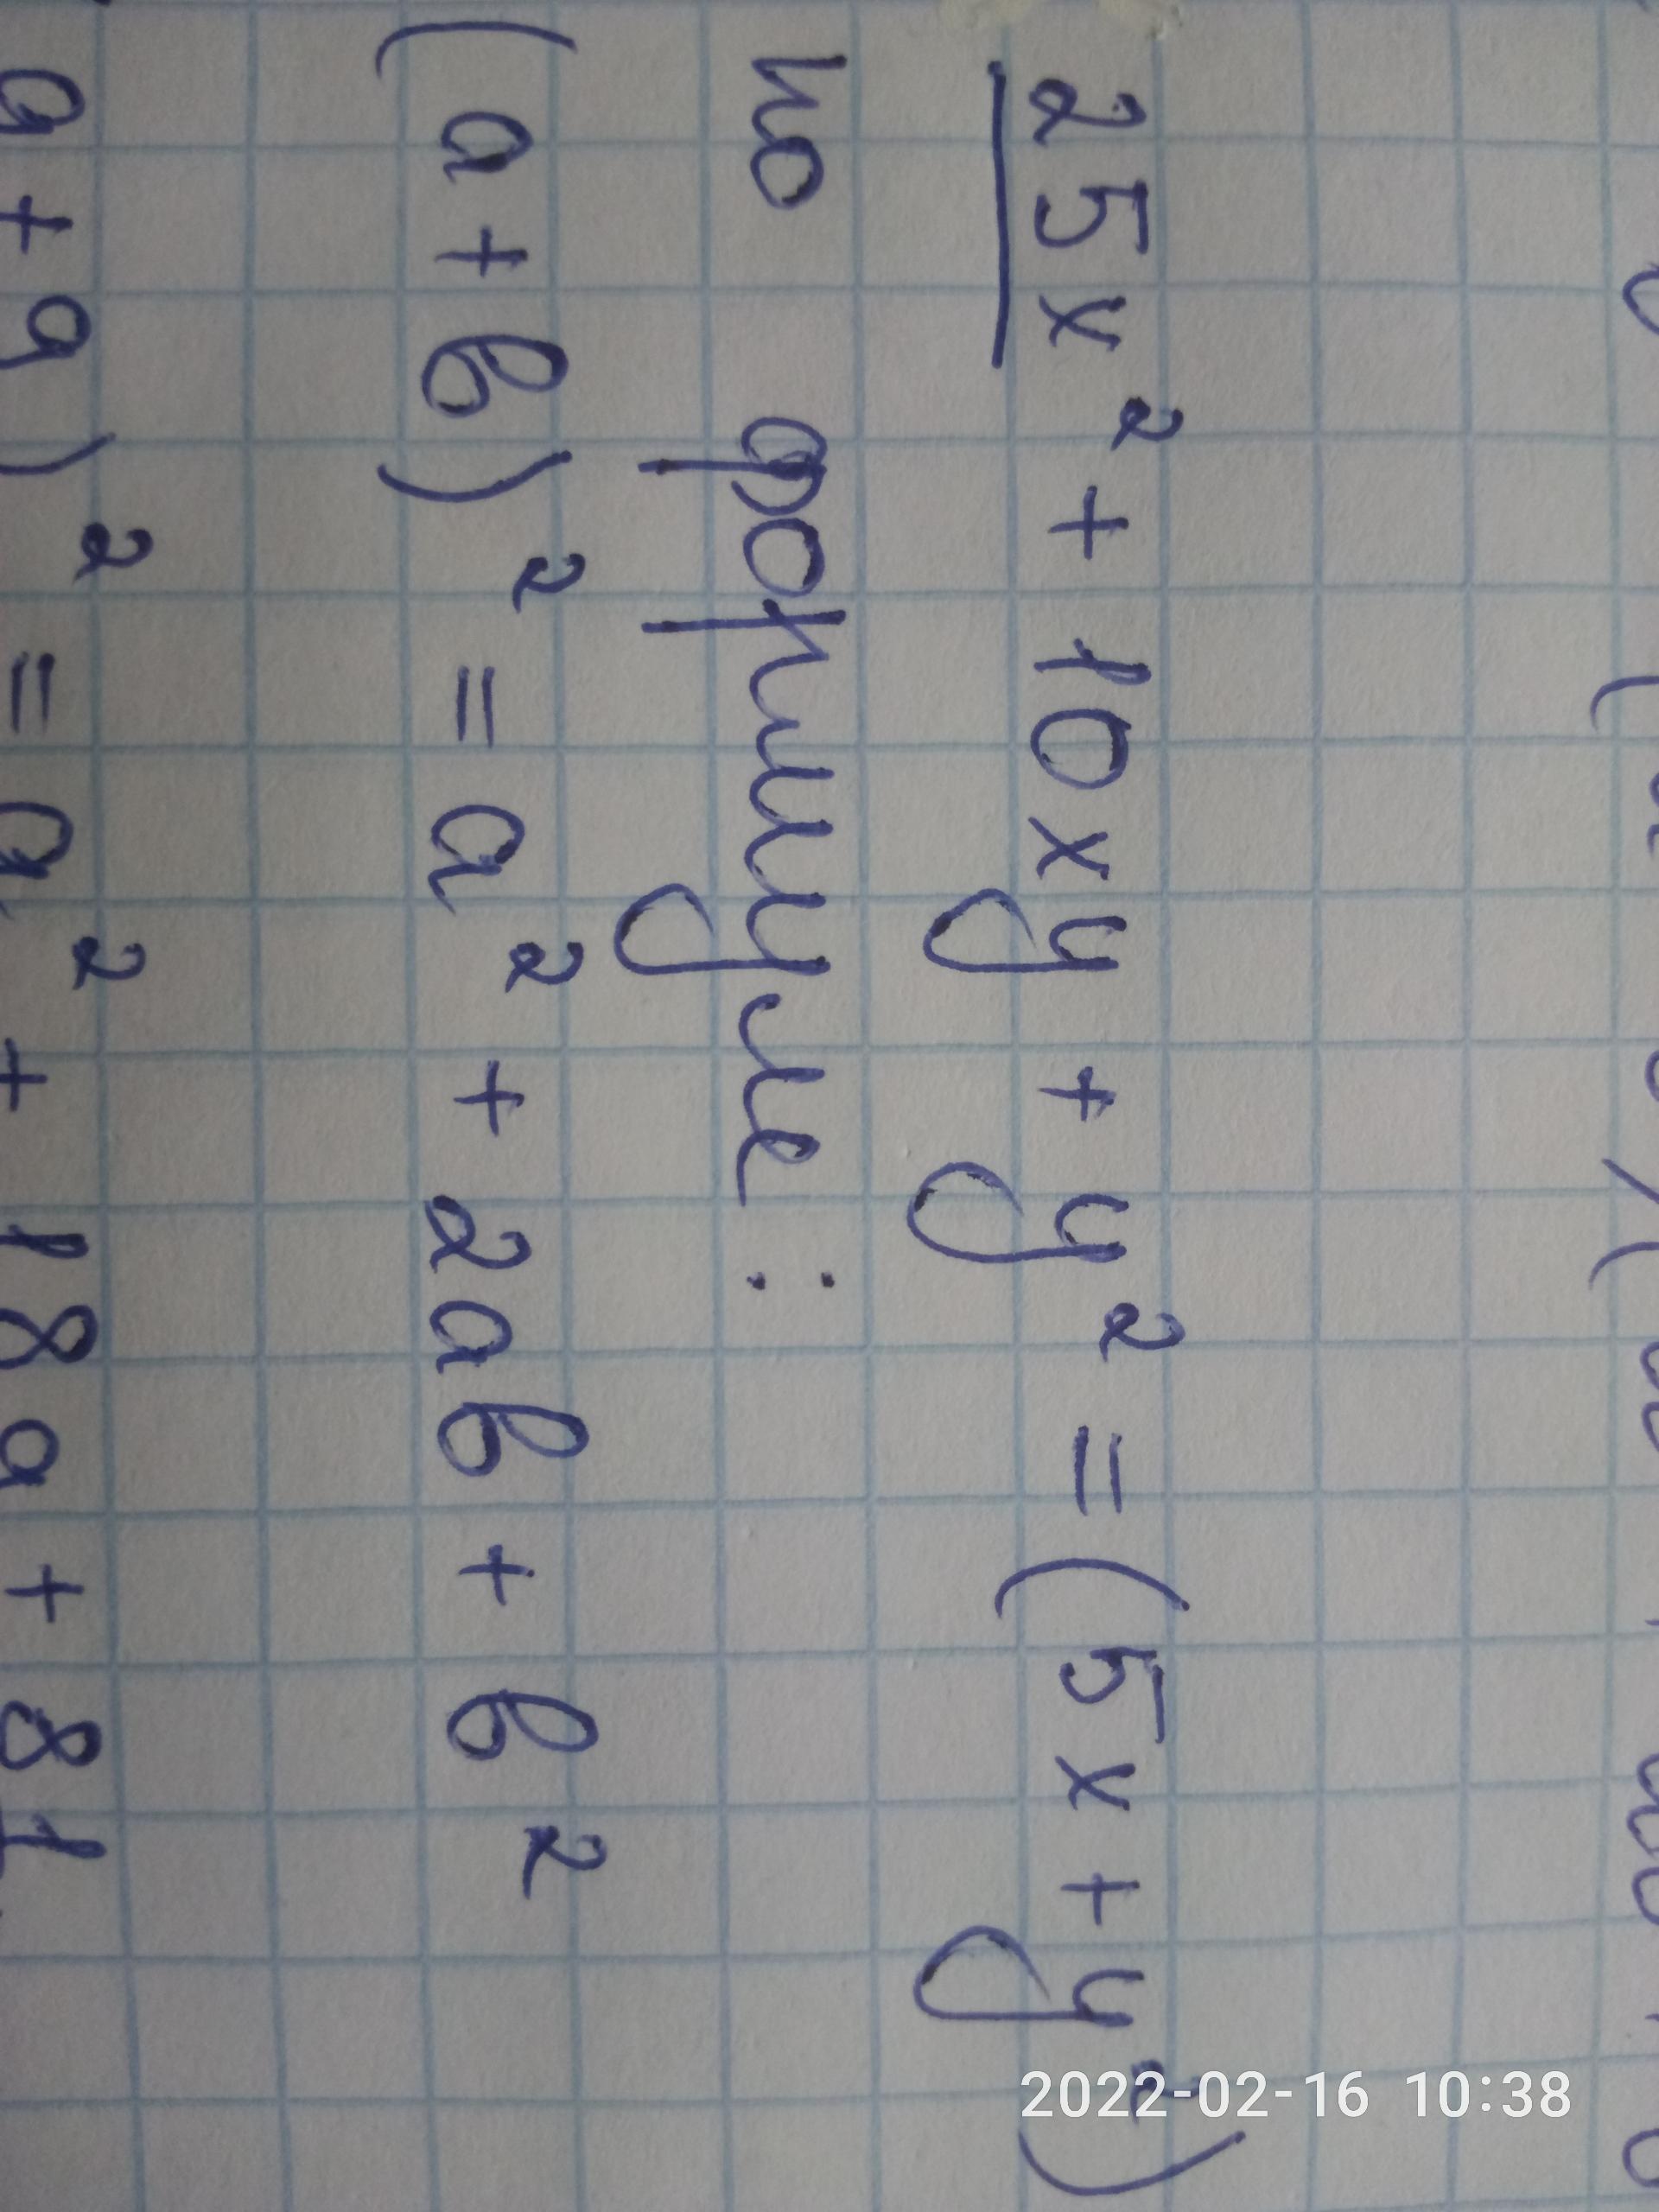 25x² + 10xy + y² = (5x + y²)
по формуле:
(a + b)² = a² + 2ab + b²
a + 9)² = a² + 18a + 81
2022-02-16 10:38